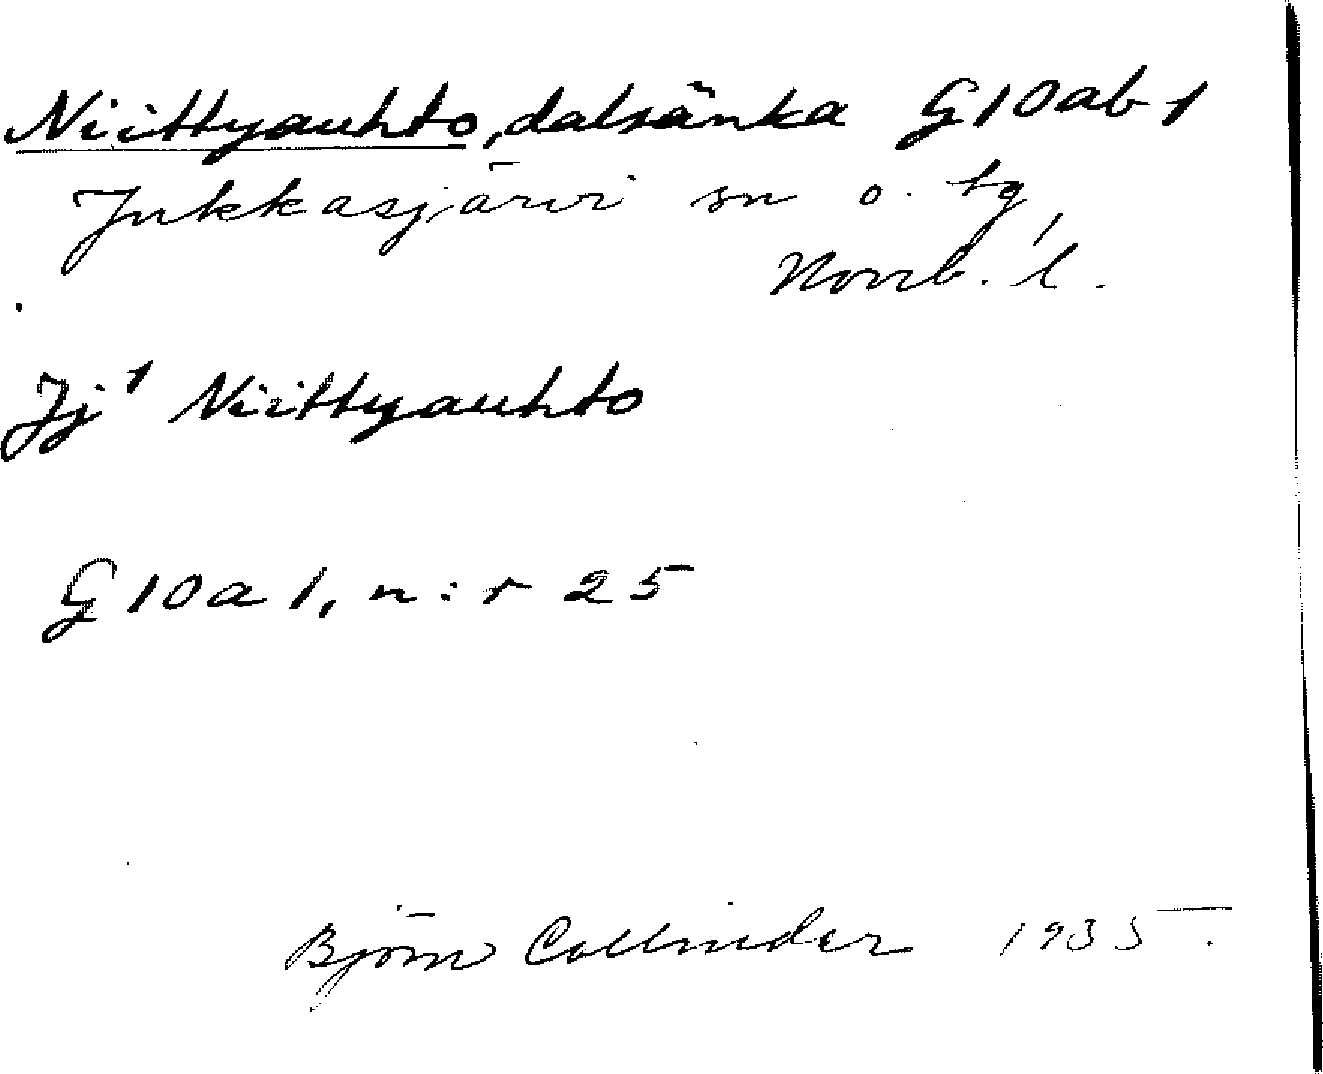 Niittyauhto, dalsänka G10ab1
Jukkasjärvi sn o. tg,
Norrb. l.
Jj¹ Niittyauhto
G10a1, n:r 25
Björn Collinder 1935.